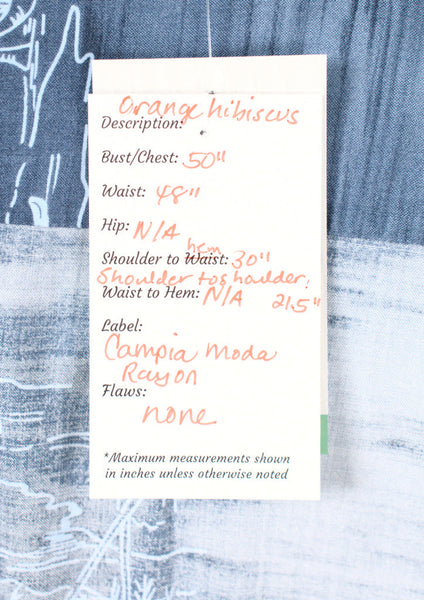 Orange hibiscus
Description:
Bust/Chest: 50"
Waist: 48"
Hip: N/A
hem
Shoulder to Waist: 30"
Shoulder to shoulder:
Waist to Hem: N/A 21.5"
Label:
Campia Moda
Rayon
Flaws:
none
*Maximum measurements shown
in inches unless otherwise noted